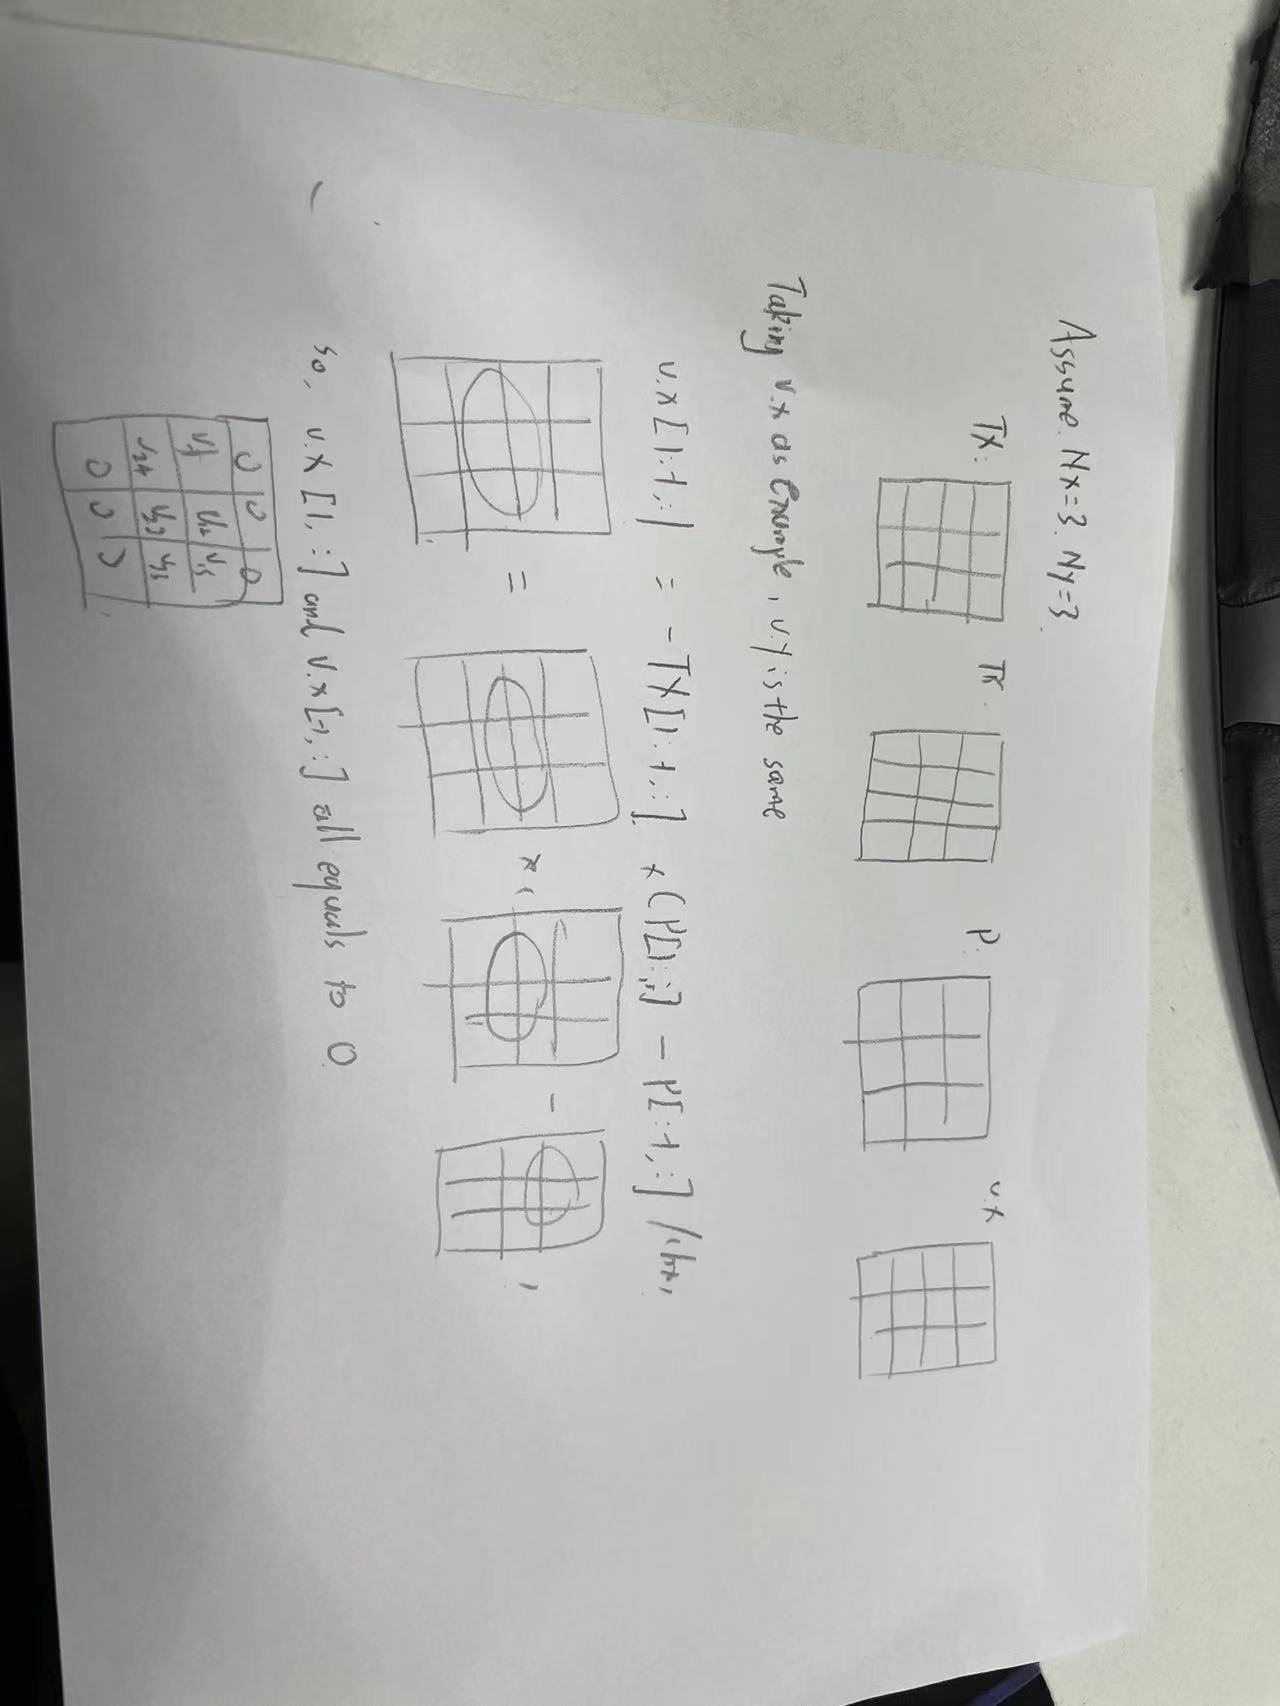 Assume. Nx=3. Ny=3.
TX: TX. P: v.x
Taking v.x as example, v.y is the same
v.x[1:-1,:] = -TX[1:-1,:] * (P[1:,:] - P[:-1,:]
= * ( - )
so, v.x [1, :] and v.x [-1, :] all equals to 0
0 0 0
0 0 0